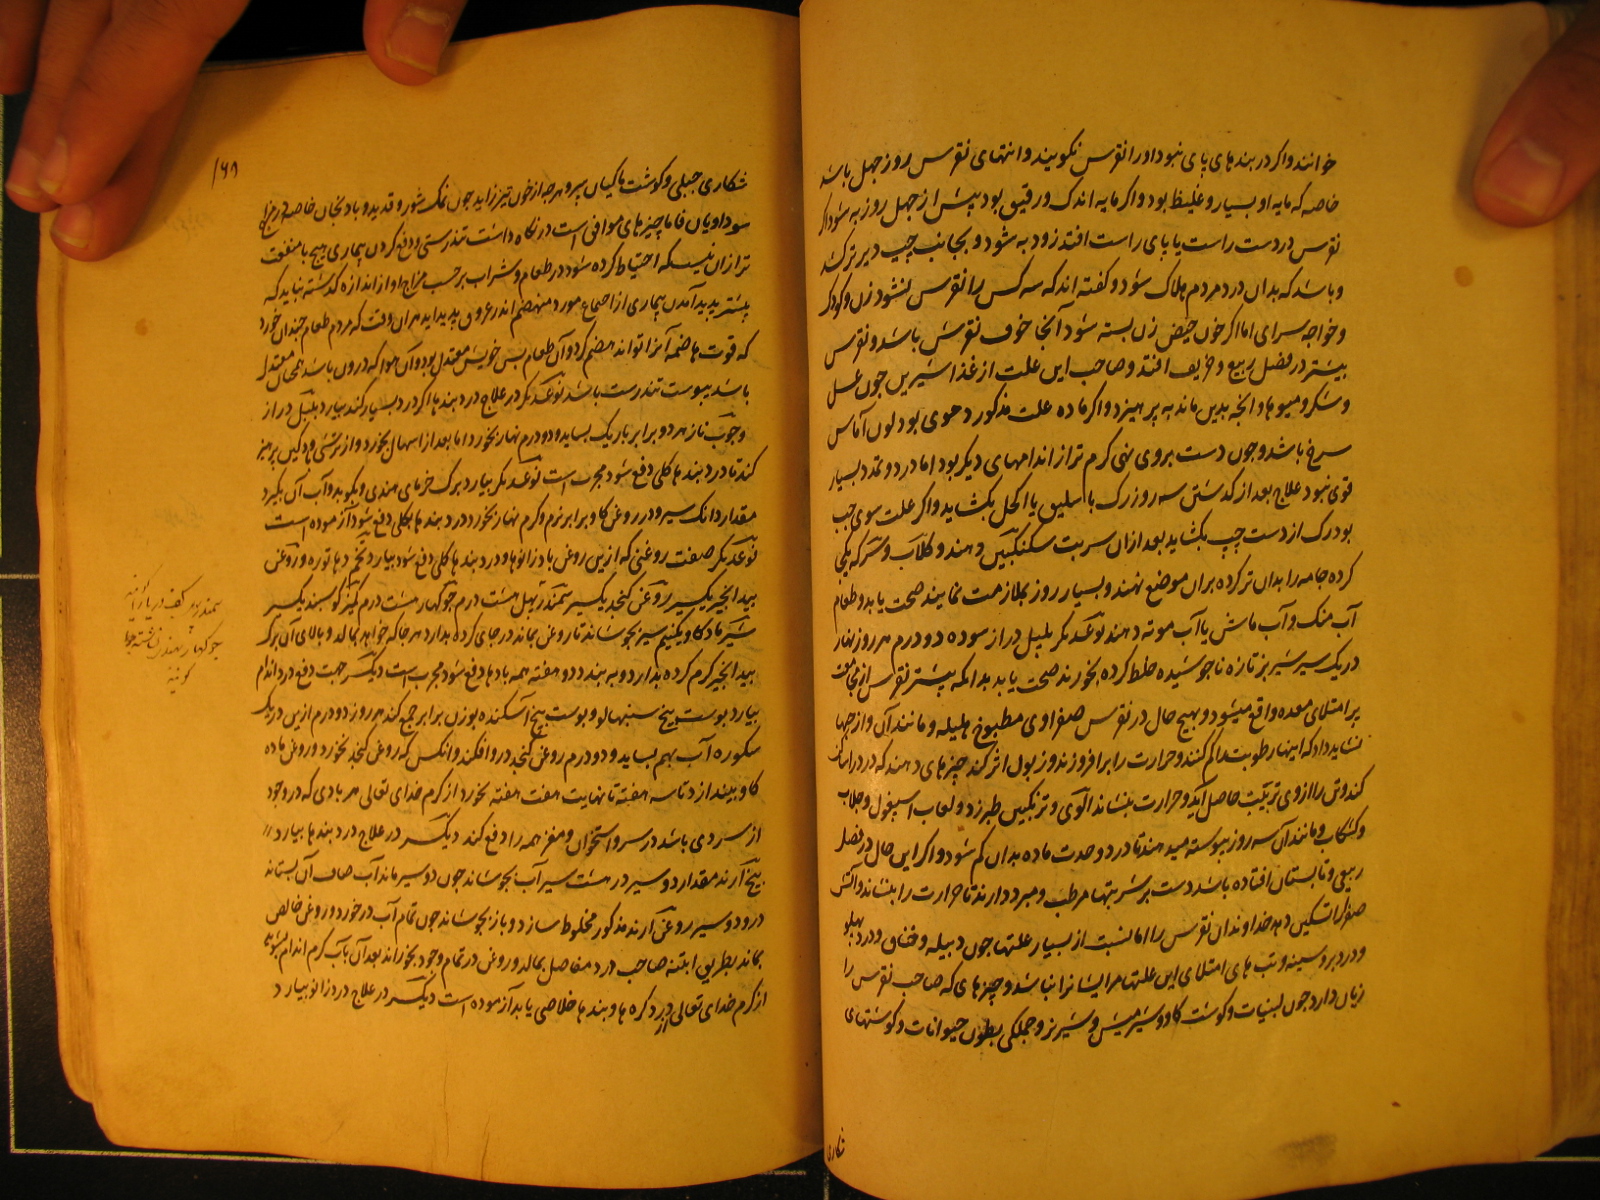 خوانند و اگر در بندهای پای نبود او را نقرس نگویند و انتهای نقرس روز چهل باشد
خاصه که مایه او بسیار و غلیظ بود و اگر مایه اندک و رقیق بود پیش از چهل روز به شود و اگر
نقرس در دست راست یا پای راست افتد زود به شود و بجانب چپ دیرتر کشد
و باشد که بدان درد مردم هلاک شود و گفته اند که سه کس را نقرس نشود زن و کودک
و خواجه سرای اما اگر خون حیض زن بسته شود آنجا خوف نقرسش باشد و نقرس
بیشتر در فصل ربیع و خریف افتد و صاحب این علت از غذا شیرین چون عسل
و شکر و میوها و انچه بدین ماند به پرهیزد و اگر ماده علت مذکور دموی بود لون آماس
سرخ باشد و چون دست بروی نهی گرم تر از اندامهای دیگر بود اما درد و تمدد بسیار
قوی نبود علاج بعد از گذشتن سه روز رگ باسلیق یا اکحل بکشاید و اگر علت سوی چپ
بود رگ از دست چپ بکشاید بعد ازان شربت سکنگبین و هند و گلاب و سرکه یکجا
کرده جامه را بدان تر کرده بران موضع نهند و بسیار روز بملازمت نمایند صحت یابد و طعام
آب منگ و آب ماش یا آب موته دهند نوعدیگر بلبل دراز سوده دو درم هر روز نهار
در یک سیر شیر بز تازه ناجوشیده خلط کرده بخورند صحت یابد بدانکه بیشتر نقرس از مجامعت
پر امتلای معده واقع میشود و بهیچ حال در نقرس صفراوی مطبوخ هلیله و مانند آن و از حبها
نشاید داد که اینها رطوبت را کم کنند و حرارت را برافروزند و زبول اثر کند چیزهای دهند که درد را ساکن
کند و تن را ازوی تربیت حاصل آید و حرارت بنشاند آلوی و ترنگبین طبرزد و لعاب اسپغول و جلاب
و کشکاب و مانند آن سه روز پیوسته میدهند تا درد و حدت ماده بدان کم شود و اگر این حال در فصل
ربیع و تابستان افتاده باشد دست بر شربتها مرطب و مبرد دارند تا حرارت را بنشاند و آتش
صفرا را تسکین دهد خداوندان نقرس را امانست از بسیار علتها چون دبیله و خناق و درد پهلو
و درد بر و سینه و تب های امتلای این علتها مر ایشانرا نباشد و چیزهای که صاحب نقرس را
زیان دارد چون لبنیات و گوشت گاو و شیر میش و شیر بز و جملگی بطون حیوانات و گوشتهای
شکاری
۱۶۸
شکاری جبلی و گوشت ماکیان پیر و هرچه از خون تیز زاید چون نمک شور و قدید و بادنجان خاصه در مزاج
سوداویان فاما چیزهای موافق است در نگاه داشت تندرستی و دفع کردن بیماری هیچ با منفعت
تر ازان نیست که احتیاط کرده شود در طعام و شراب بر حسب مزاج او از اندازه گذشته نباید که
بیشتر پدید آمدن بیماری از اجماع مورد منهضم اندر عروق پدید اید هران وقت که مردم طعام چندان خورد
که قوت هاضمه آنرا تواند هضم کرد و آن طعام بس خویش معتدل بود و آن هوا که درون باشد همچنان معتدل
باشد پیوسته تندرست باشد نوعدیگر در علاج درد بندها اگر درد بسیار کند بیارد بلبل دراز
و چوب ناز هر دو برابر باریک بساید و دو درم نهار بخورد اما بعد از اسهال بخورد و از ترشی و هر کس پرهیز
کند تا درد بندها کلی دفع شود مجرب است نوعدیگر بیارد برگ خرمای هندی و بکوبد و آب آن بگیرد
مقدار دانک سیر و در روغن گاو برابر نرم و گرم نهار بخورد درد بندها بکلی دفع شود آزموده است
نوعدیگر صفت روغنی که ازین روغن باد زانوها و درد بندها کلی دفع شود بیارد تخم دهاتوره و روغن
بیدانجیر یکسیر روغن کنجد یکسیر سمندر پهل هشت درم چوکهار هشت درم کمیز گوسپند یکسیر
شیر ماده گاو یکنیم سیر بجوشاند تا روغن بماند در جای کرده بدارد هرجا که خواهد بمالد و بالای آن برگ
بیدانجیر گرم کرده بدارد و به بندد دو هفته همه بادها دفع شود مجرب است دیگر جهت دفع درد اندام
بیارد پوست بیخ سنبهالو و پوست بیخ آسکنده بوزن برابر جمع کند هر روز دو درم ازین در یک
سکوره آب بهم بساید و دو درم روغن کنجد درو افکند و انکس که روغن کنجد نخورد روغن ماده
گاو بیندازد تا سه هفته تا نهایت هفت هفته بخورد از کرم خدای تعالی هر بادی که در وجود
از سردی باشد در سر و استخوان و مغز همه را دفع کند دیگر در علاج درد بندها بیارد
بیخ آرند مقدار دو سیر در هشت سیر آب بجوشاند چون دو سیر ماند آب صاف آن بستاند
درو دو سیر روغن آرند مذکور مخلوط سازد و باز بجوشاند چون تمام آب در خورد و روغن خالص
بماند بطریق ابتنه صاحب درد مفاصل بمالد و روغن در تمام وجود بخوراند بعد آن بآب گرم اندام بشوید
از کرم خدای تعالی از درد کره ها و بندها خلاصی یابد آزموده است دیگر در علاج درد زانو بیارد
سمندر پهل کف دریا گویند
چوکهار بهندی
گویند